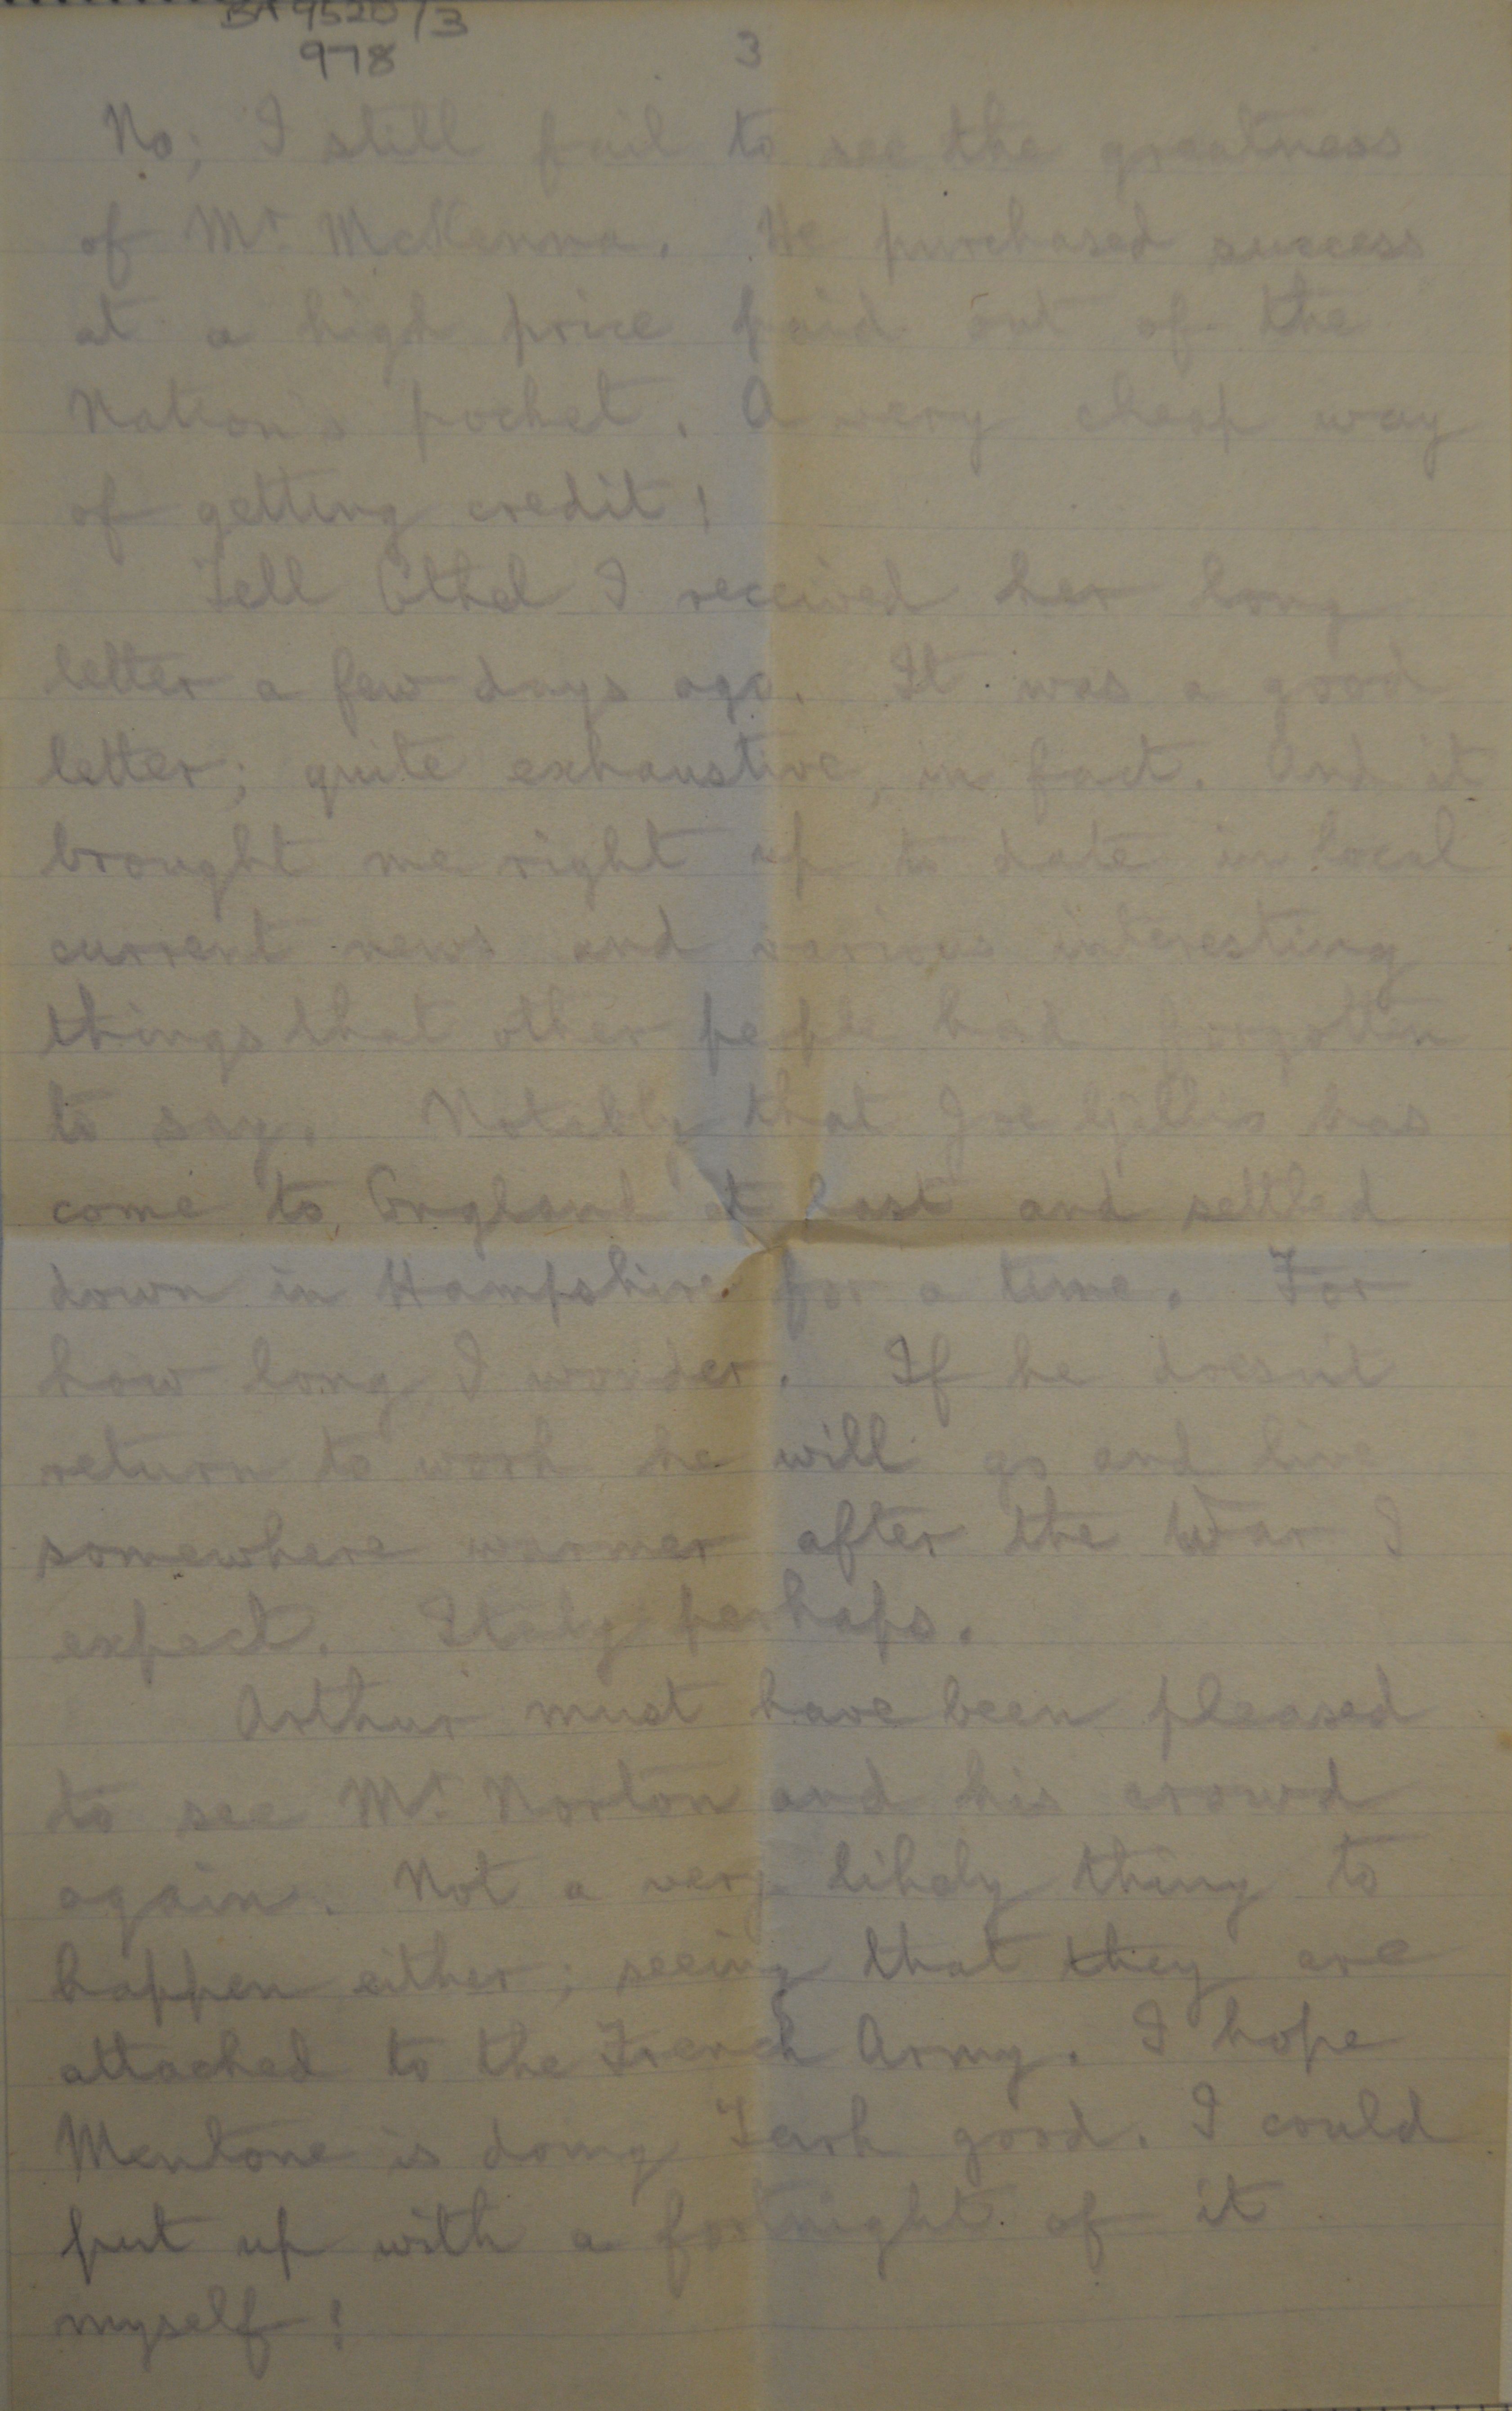 BA 9520/3
978
3
No; I still fail to see the greatness
of Mr. McKenna. He purchased success
at a high price paid out of the
Nation's pocket. A very cheap way
of getting credit!
Tell Ethel I received her long
letter a few days ago. It was a good
letter; quite exhaustive, in fact. And it
brought me right up to date in local
current news and various interesting
things that other people had forgotten
to say. Notably that Joe Gillis has
come to England at last and settled
down in Hampshire for a time. For
how long I wonder. If he doesn't
return to work he will go and live
somewhere warmer after the War I
expect. Italy perhaps.
Arthur must have been pleased
to see Mr. Norton and his crowd
again. Not a very likely thing to
happen either; seeing that they are
attached to the French Army. I hope
Mentone is doing good. I could
put up with a fortnight of it
myself!